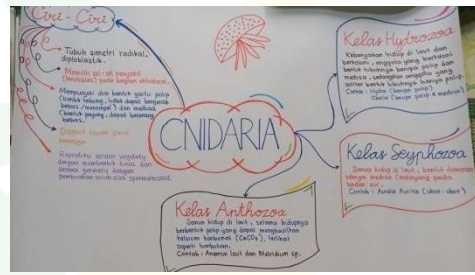 Ciri - Ciri
Tubuh simetri radikal,
diploblastik.
Memiliki sel-sel penyengat
pada bagian ektoderm.
Mempunyai dua bentuk yaitu polip
(bentuk tabung, tidak dapat bergerak
bebas / menempel) dan medusa
(bentuk payung, dapat berenang
bebas).
Disebut hewan
berongga
Reproduksi secara vegetatif
dengan membentuk tunas dan
secara generatif dengan
pembuahan ovum oleh spermatozoid.
CNIDARIA
Kelas Hydrozoa
Kebanyakan hidup di laut dan
berkoloni, anggota yang berkoloni
bentuk tubuhnya berupa polip dan
medusa, sedangkan anggota yang
soliter bentuk tubuhnya hanya polip.
Contoh : Hydra (berupa polip)
Obelia (berupa polip & medusa)
Kelas Scyphozoa
Semua hidup di laut, bentuk dominan
sebagai medusa pada
badan air.
Contoh : Aurelia Aurita (ubur-ubur)
Kelas Anthozoa
Semua hidup di laut, selama hidupnya
berbentuk polip yang dapat menghasilkan
kalsium karbonat (CaCO3), terlihat
seperti tumbuhan.
Contoh : Anemon laut dan Metridium sp.